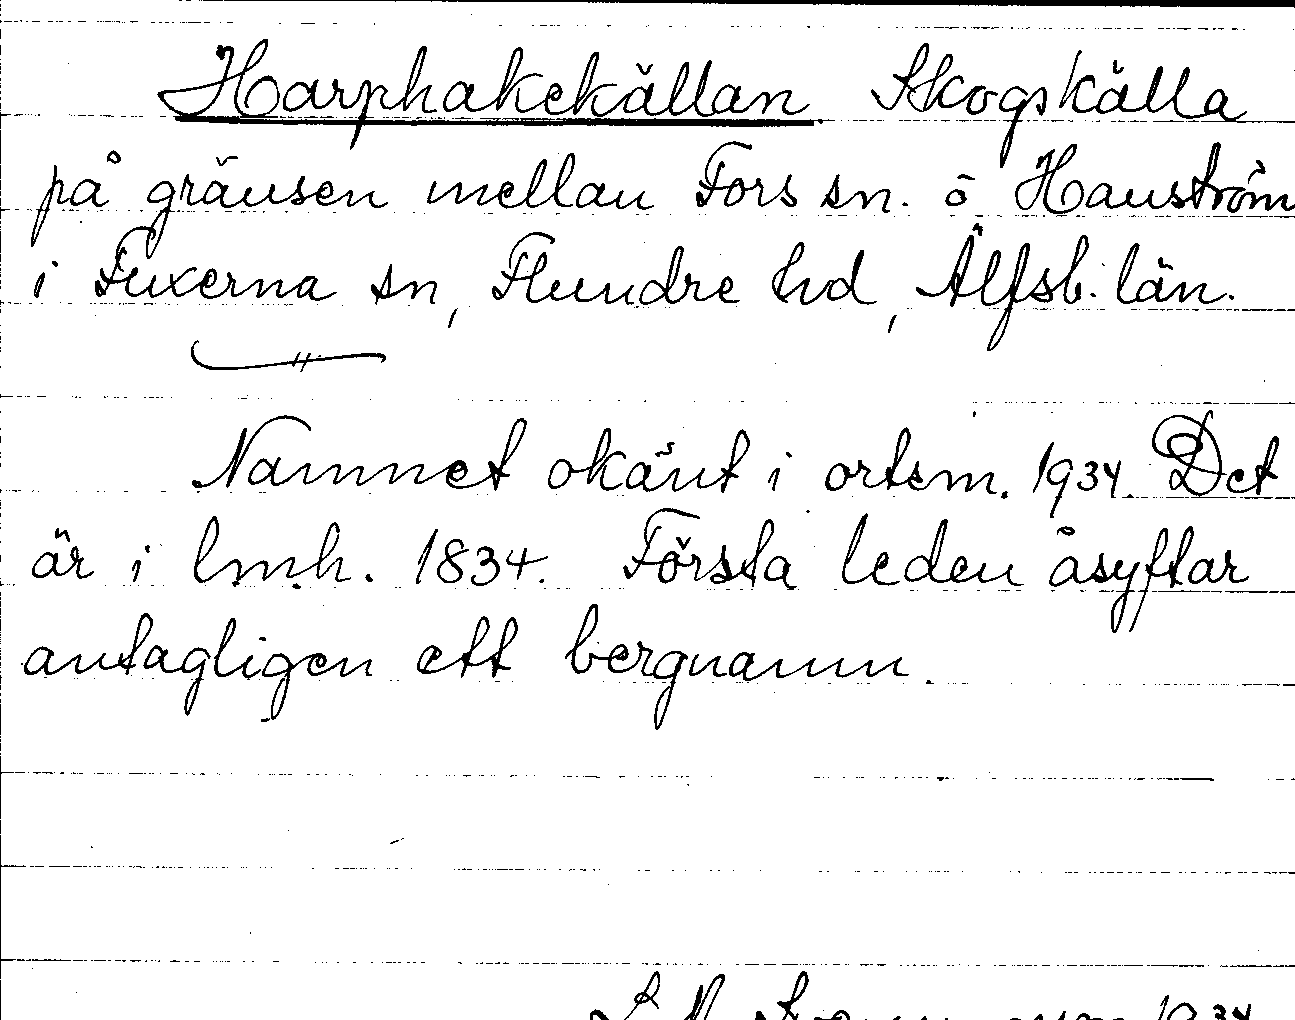 Harphakekällan. Skogskälla
på gränsen mellan Fors sn. o Hanström
i Fuxerna sn, Flundre hd, Älfsb. län.
Namnet okänt i ortsm. 1934. Det
är i lmh. 1834. Första leden åsyftar
antagligen ett bergnamn.
1934